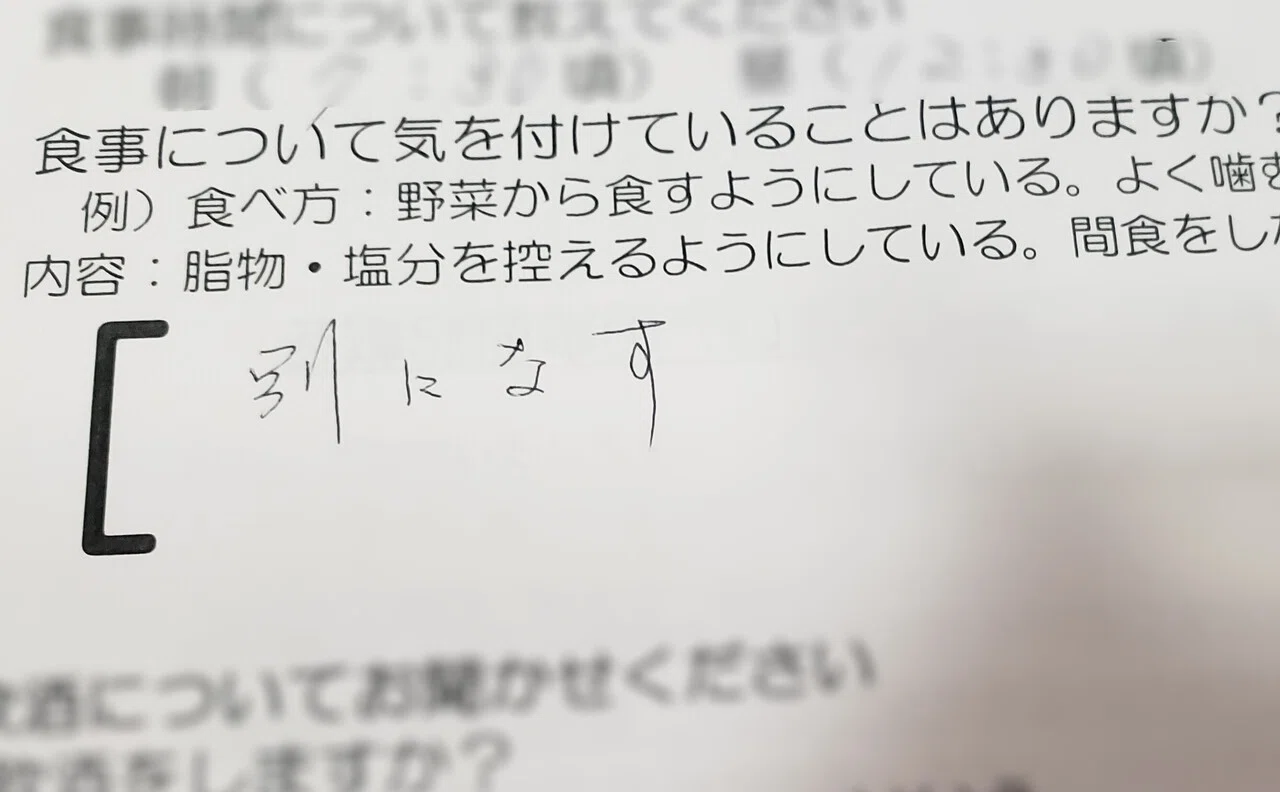 食事時間について教えてください
朝（ 7：30 頃） 昼（ 12：30 頃）
食事について気を付けていることはありますか？
例）食べ方：野菜から食すようにしている。よく噛む
内容：脂物・塩分を控えるようにしている。間食をした
別になす
飲酒についてお聞かせください
飲酒をしますか？